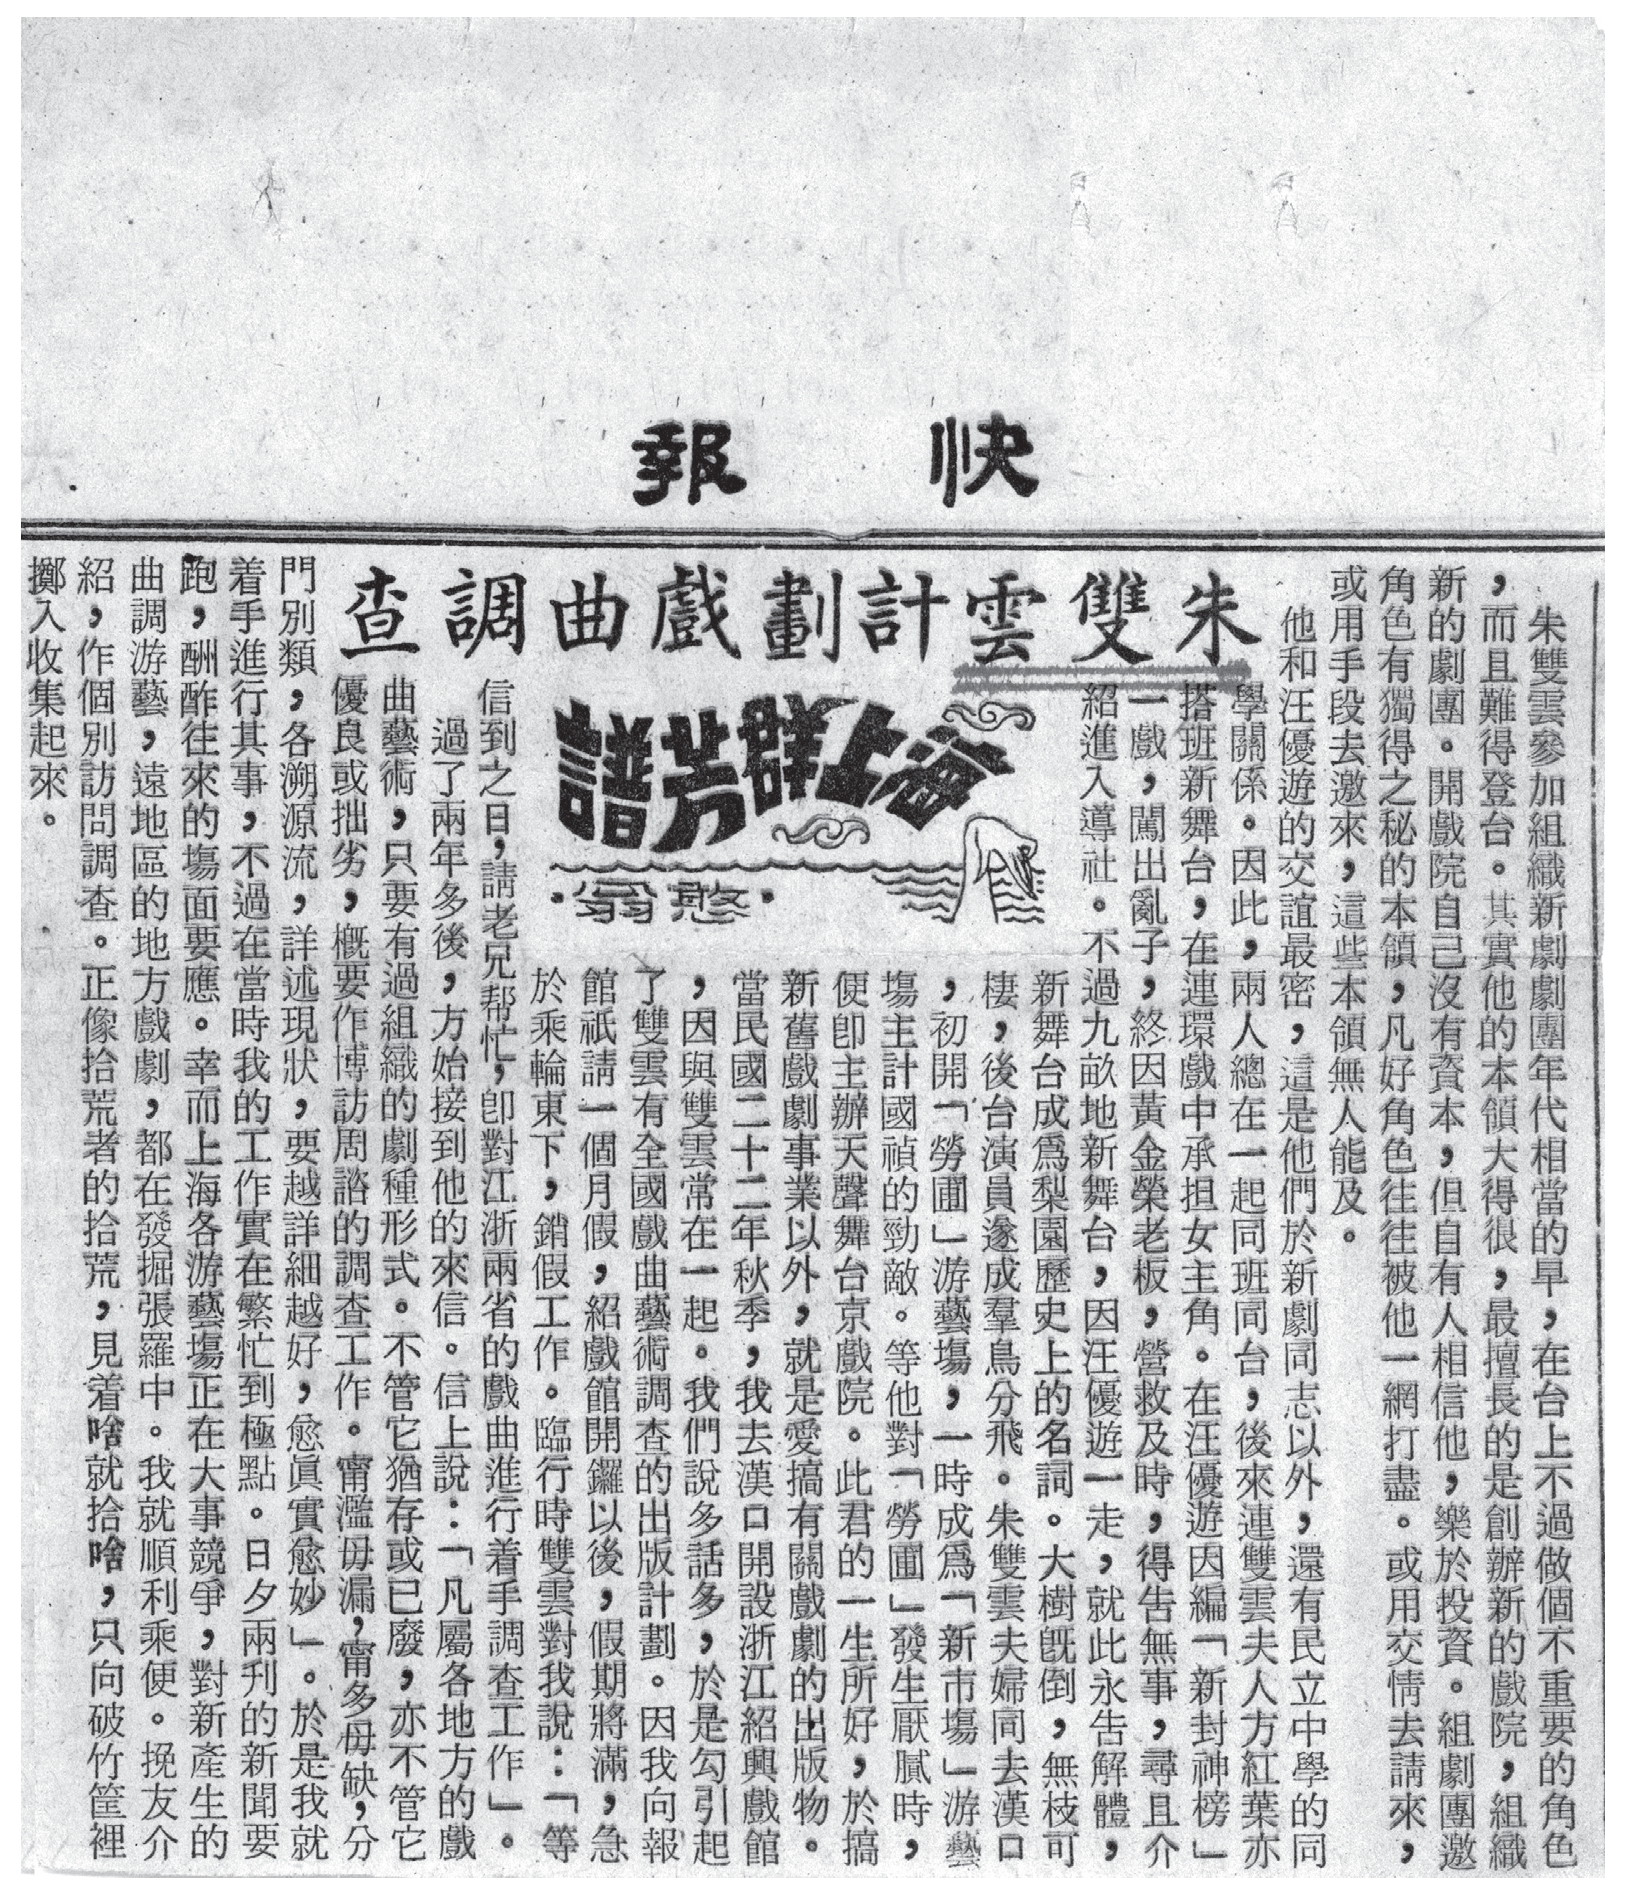 快報
朱雙雲計劃戲曲調查
海上群芳譜
·憨翁·
朱雙雲參加組織新劇劇團年代相當的早，在台上不過做個不重要的角色
，而且難得登台。其實他的本領大得很，最擅長的是創辦新的戲院，組織
新的劇團。開戲院自己沒有資本，但自有人相信他，樂於投資。組劇團邀
角色有獨得之秘的本領，凡好角色往往被他一網打盡。或用交情去請來，
或用手段去邀來，這些本領無人能及。
他和汪優遊的交誼最密，這是他們於新劇同志以外，還有民立中學的同
學關係。因此，兩人總在一起同班同台，後來連雙雲夫人方紅葉亦
搭班新舞台，在連環戲中承担女主角。在汪優遊因編「新封神榜」
一戲，闖出亂子，終因黃金榮老板，營救及時，得告無事，尋且介
紹進入導社。不過九畝地新舞台，因汪優遊一走，就此永告解體，
新舞台成爲梨園歷史上的名詞。大樹旣倒，無枝可
棲，後台演員遂成羣鳥分飛。朱雙雲夫婦同去漢口
，初開「勞圃」游藝塲，一時成爲「新市塲」游藝
塲主計國禎的勁敵。等他對「勞圃」發生厭膩時，
便卽主辦天聲舞台京戲院。此君的一生所好，於搞
新舊戲劇事業以外，就是愛搞有關戲劇的出版物。
當民國二十二年秋季，我去漢口開設浙江紹興戲館
，因與雙雲常在一起。我們說多話多，於是勾引起
了雙雲有全國戲曲藝術調查的出版計劃。因我向報
館祇請一個月假，紹戲館開鑼以後，假期將滿，急
於乘輪東下，銷假工作。臨行時雙雲對我說：「等
信到之日，請老兄帮忙，卽對江浙兩省的戲曲進行着手調查工作」。
過了兩年多後，方始接到他的來信。信上說：「凡屬各地方的戲
曲藝術，只要有過組織的劇種形式。不管它猶存或已廢，亦不管它
優良或拙劣，槪要作博訪周諮的調查工作。甯濫毋漏，甯多毋缺，分
門別類，各溯源流，詳述現狀，要越詳細越好，愈眞實愈妙」。於是我就
着手進行其事，不過在當時我的工作實在繁忙到極點。日夕兩刋的新聞要
跑，酬酢往來的塲面要應。幸而上海各游藝塲正在大事競爭，對新產生的
曲調游藝，遠地區的地方戲劇，都在發掘張羅中。我就順利乘便。挽友介
紹，作個別訪問調查。正像拾荒者的拾荒，見着啥就拾啥，只向破竹筐裡
擲入收集起來。